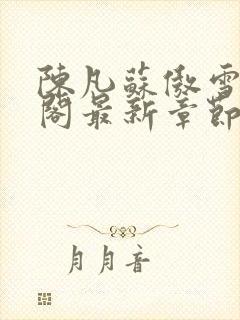 陳凡蘇傲雪
閣最新章節
月月音